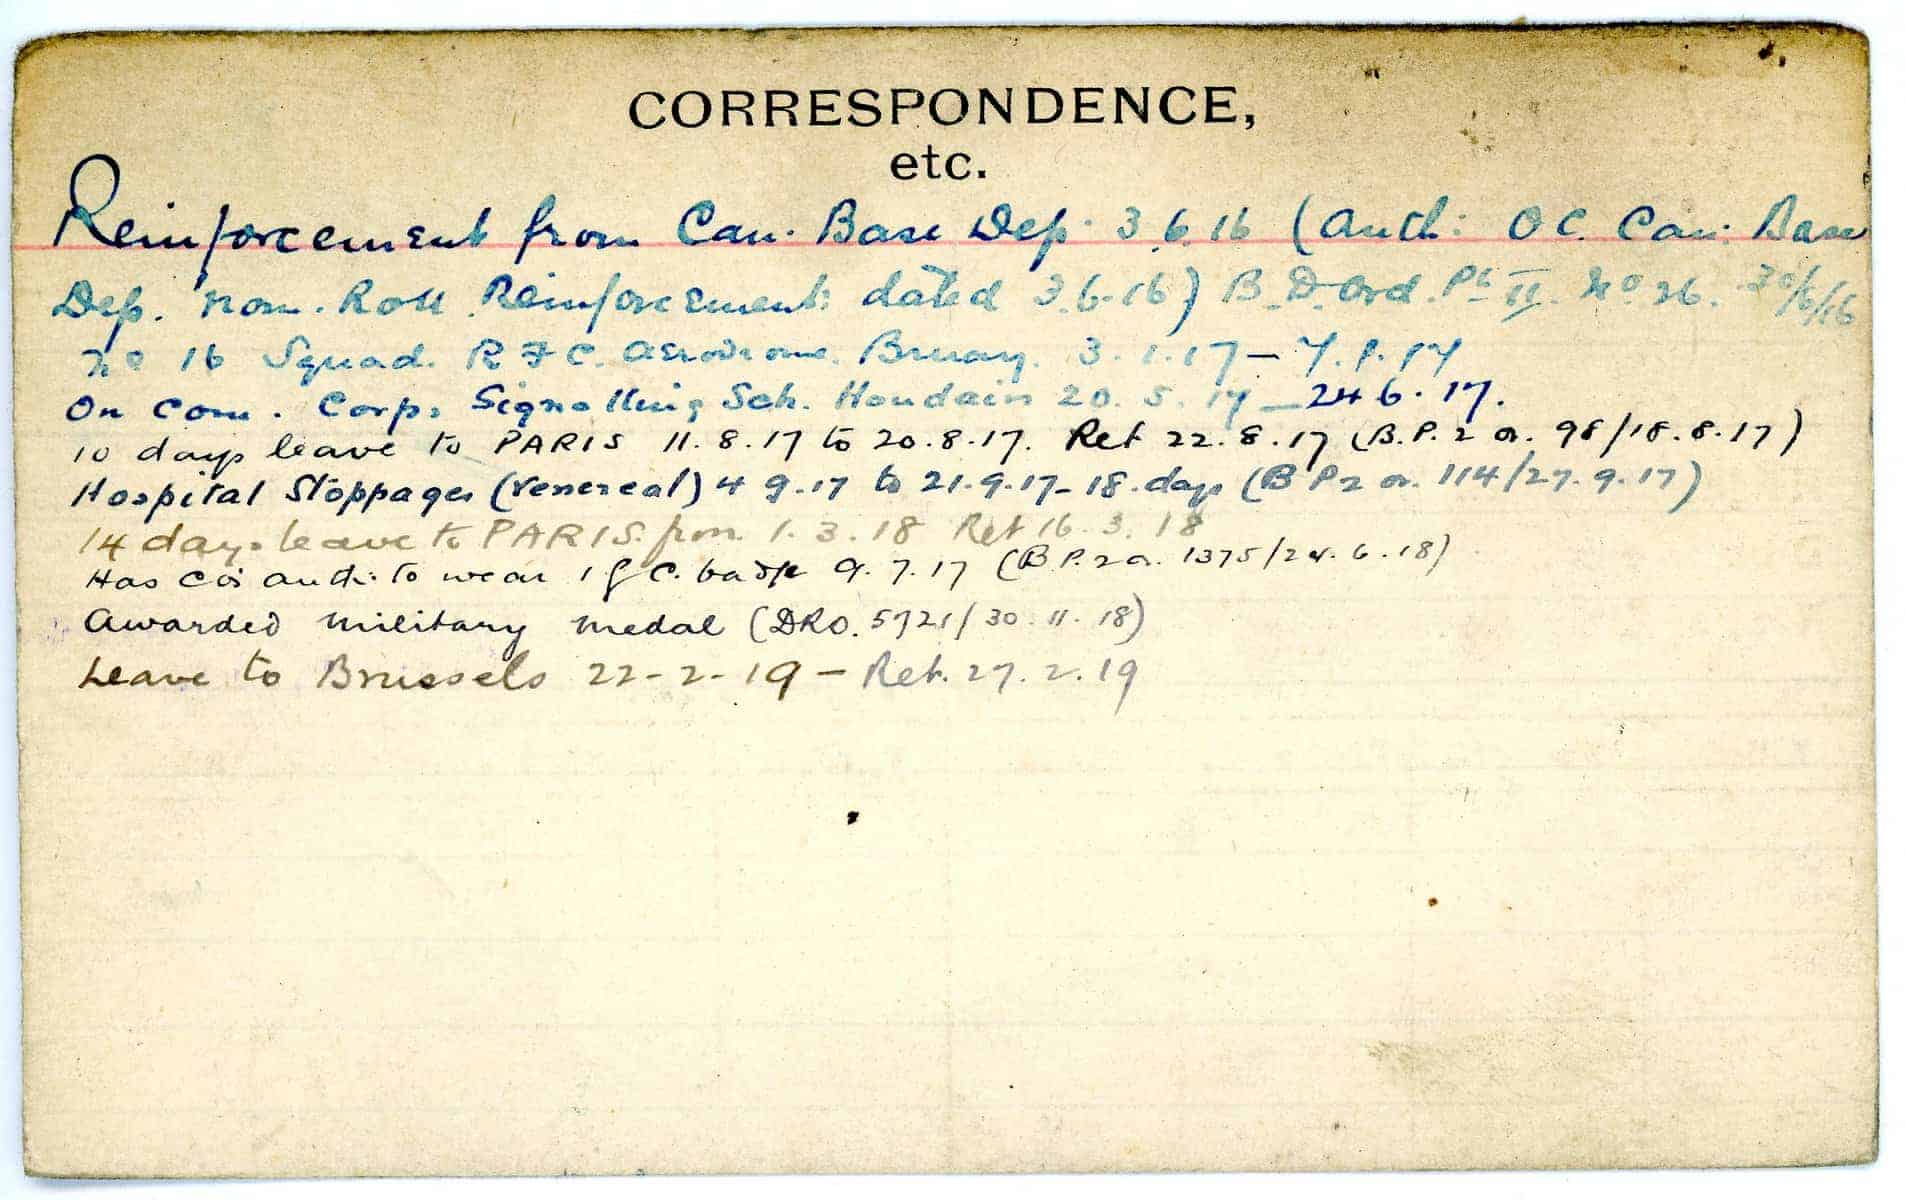 CORRESPONDENCE,
etc.
Reinforcement from Can. Base Dep. 3.6.16 (Auth: OC. Can: Base
Dep. Nom. Roll Reinforcements dated 3.6.16) B.D. Ord. Pt II. No 26. 30/6/16
No 16 Squad. R F C. Aerodrome. Bruay. 3.1.17 – 7.1.17
On Com. Corps Signalling Sch. Houdain 20.5.17 – 24 6.17.
10 days leave to PARIS 11.8.17 to 20.8.17. Ret 22.8.17 (B.P. 2 o. 98/18.8.17)
Hospital Stoppages (Venereal) 4 9.17 to 21.9.17 – 18.days (B P 2 o. 114/27.9.17)
14 days leave to PARIS. from 1.3.18 Ret 16.3.18
Has CO's auth: to wear 1 G C. badge 9.7.17 (B.P. 2 o. 1375/24.6.18)
Awarded Military Medal (DRO. 5721/30.11.18)
Leave to Brussels 22-2-19 – Ret. 27.2.19